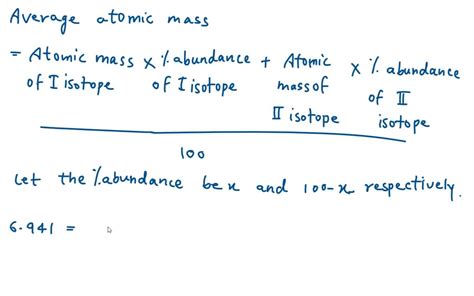 Average atomic mass
= Atomic mass × % abundance + Atomic × % abundance
of I isotope of I isotope mass of of II
II isotope isotope
100
Let the % abundance be x and 100-x respectively.
6.941 =